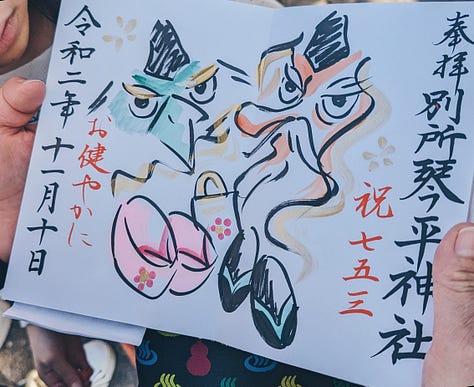 奉拝
別所琴平神社
祝七五三
お健やかに
令和二年十一月十日